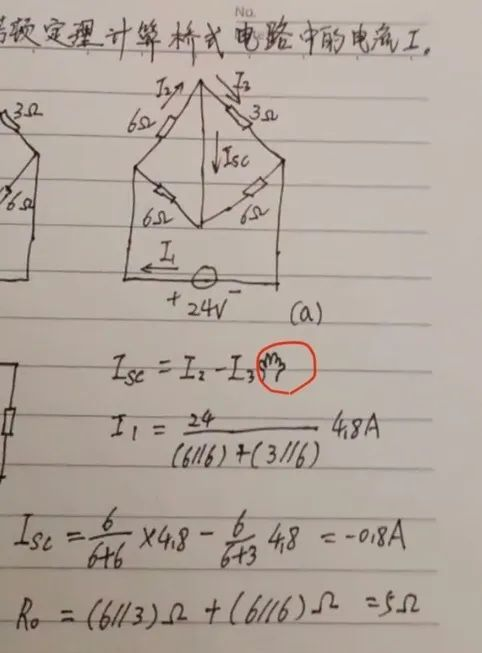 No.
顿定理计算桥式电路中的电流I。
3Ω
6Ω
I₂
I₃
6Ω
3Ω
Isc
6Ω
6Ω
I₁
+ 24V −
(a)
Isc = I₂ - I₃
I₁ = 24 / (6//6) + (3//6) 4.8A
Isc = 6/6+6 × 4.8 - 6/6+3 4.8 = -0.8A
R₀ = (6//3)Ω + (6//6)Ω = 5Ω